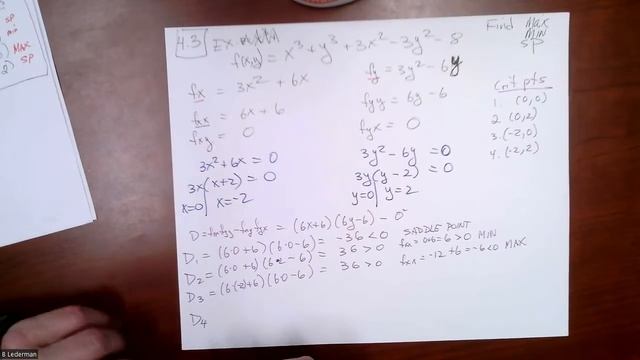 4.3 EX
f(x,y) = x³ + y³ + 3x² - 3y² - 8
Find MAX
MIN
SP
fx = 3x² + 6x
fy = 3y² - 6y
fxx = 6x + 6
fyy = 6y - 6
fxy = 0
fyx = 0
Crit pts
1. (0,0)
2. (0,2)
3. (-2,0)
4. (-2,2)
3x² + 6x = 0
3x(x+2) = 0
x=0 | x=-2
3y² - 6y = 0
3y(y-2) = 0
y=0 | y=2
D = fxx fyy - fxy fyx = (6x+6)(6y-6) - 0²
D₁ = (6·0+6)(6·0-6) = -36 < 0 SADDLE POINT
D₂ = (6·0+6)(6·2-6) = 36 > 0 fxx = 0+6 = 6 > 0 MIN
D₃ = (6·(-2)+6)(6·0-6) = 36 > 0 fxx = -12+6 = -6 < 0 MAX
D₄
MAX
SP
B Lederman